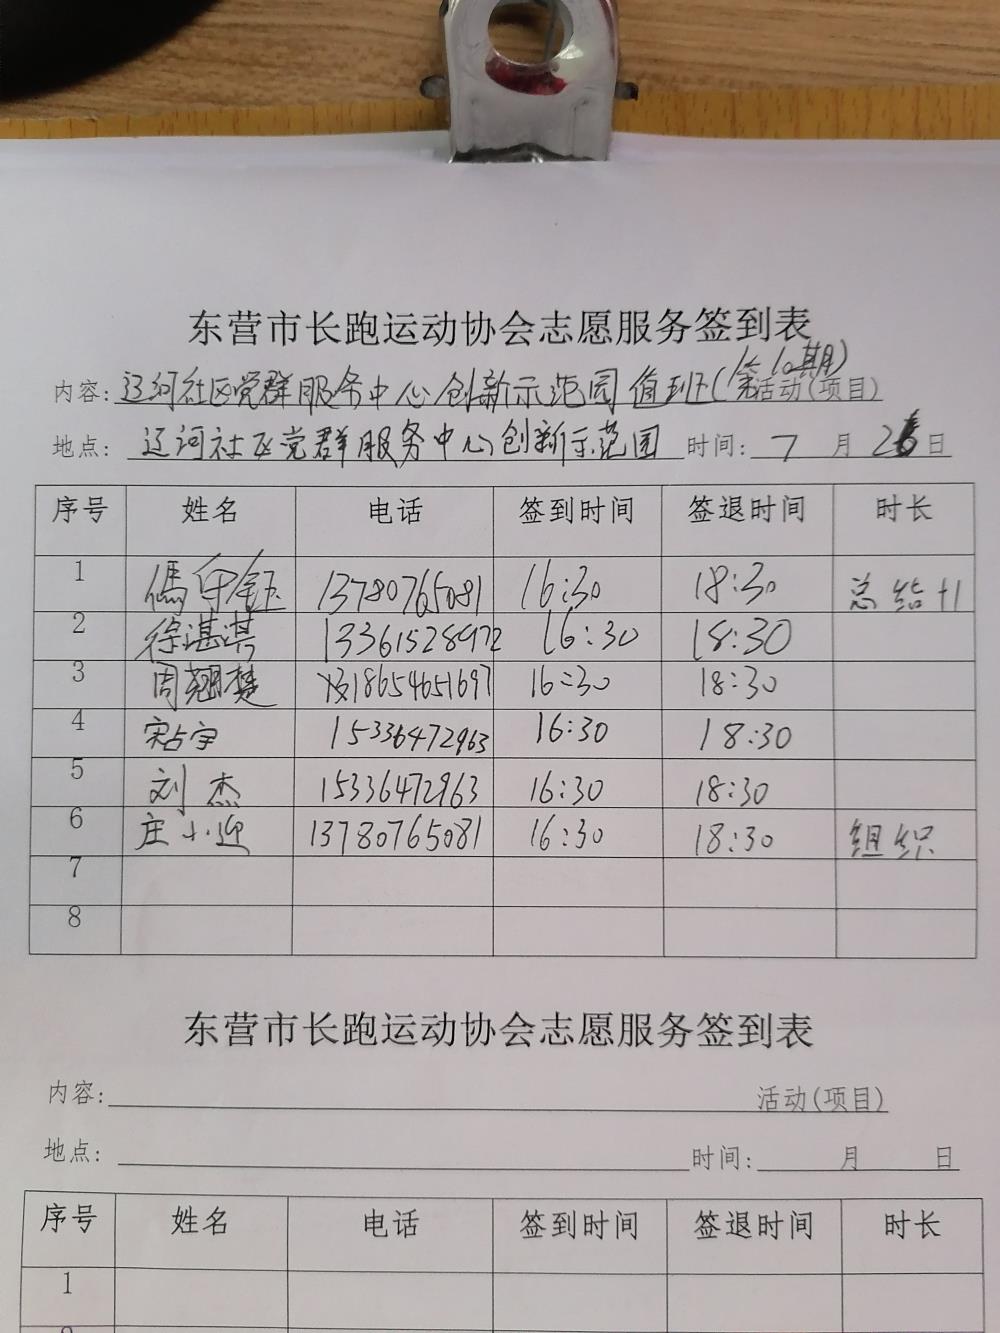 东营市长跑运动协会志愿服务签到表
内容: 辽河社区党群服务中心创新示范园值班(第10期)活动(项目)
地点: 辽河社区党群服务中心创新示范园 时间: 7 月 26 日
序号 姓名 电话 签到时间 签退时间 时长
1 傿守钰 13780765081 16:30 18:30 总结+1
2 徐湛淇 13361528972 16:30 18:30
3 周翘楚 18654651697 16:30 18:30
4 宋占宇 15336472963 16:30 18:30
5 刘杰 15336472963 16:30 18:30
6 庄小迎 13780765081 16:30 18:30 组织
7
8
东营市长跑运动协会志愿服务签到表
内容: 活动(项目)
地点: 时间: 月 日
序号 姓名 电话 签到时间 签退时间 时长
1